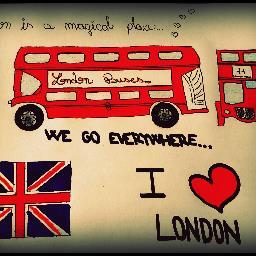 on is a magical place...
London Buses
11
WE GO EVERYWHERE...
I
LONDON